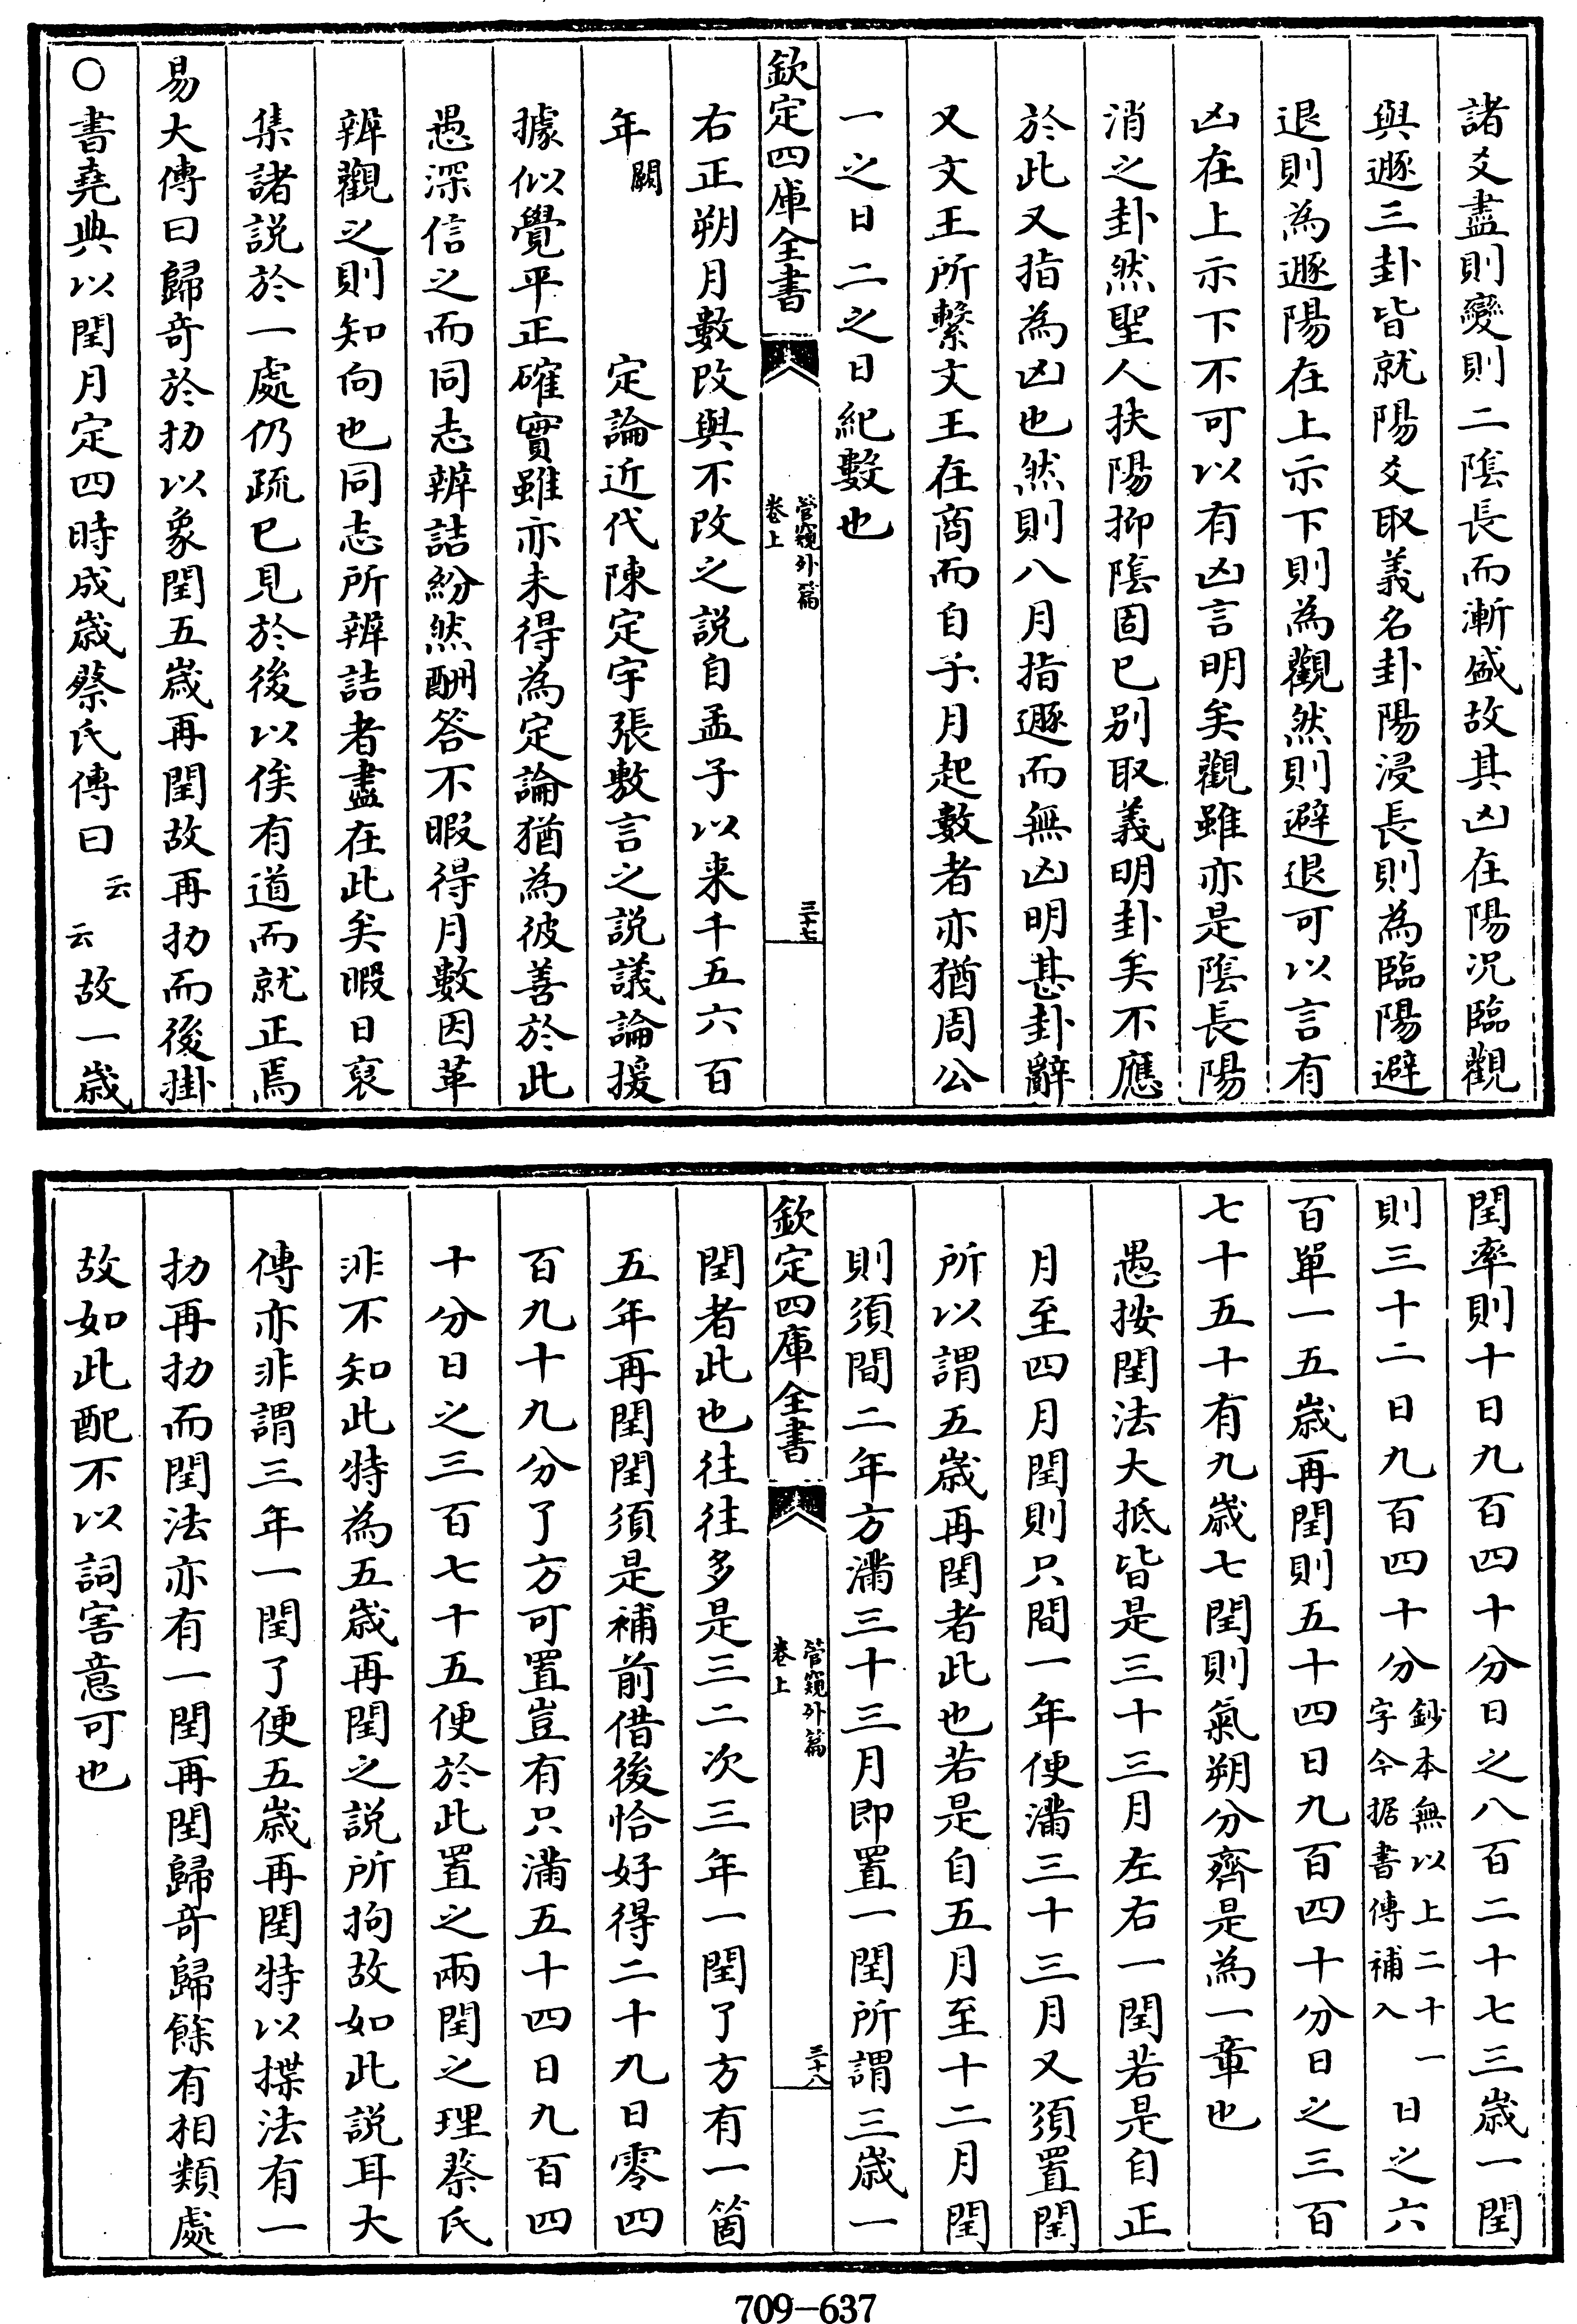 諸爻盡則變則二隂長而漸盛故其凶在陽况臨觀
與遯三卦皆就陽爻取義名卦陽浸長則為臨陽避
退則為遯陽在上示下則為觀然則避退可以言有
凶在上示下不可以有凶言明矣觀雖亦是隂長陽
消之卦然聖人扶陽抑隂固已别取義明卦矣不應
於此又指為凶也然則八月指遯而無凶明甚卦辭
又文王所繫文王在商而自子月起數者亦猶周公
一之日二之日紀數也
欽定四庫全書
管窺外篇
卷上
三十七
右正朔月數改與不改之説自孟子以来千五六百
年闕定論近代陳定宇張敷言之説議論援
據似覺平正確實雖亦未得為定論猶為彼善於此
愚深信之而同志辨詰紛然酬答不暇得月數因革
辨觀之則知向也同志所辨詰者盡在此矣暇日裒
集諸説於一處仍疏已見於後以俟有道而就正焉
易大傳曰歸奇於扐以象閏五嵗再閏故再扐而後掛
〇書堯典以閏月定四時成嵗蔡氏傳曰云云故一嵗
閏率則十日九百四十分日之八百二十七三嵗一閏
則三十二日九百四十分鈔本無以上二十一字今据書傳補入日之六
百單一五嵗再閏則五十四日九百四十分日之三百
七十五十有九嵗七閏則氣朔分齊是為一章也
愚按閏法大抵皆是三十三月左右一閏若是自正
月至四月閏則只間一年便滿三十三月又須置閏
所以謂五嵗再閏者此也若是自五月至十二月閏
則須間二年方滿三十三月即置一閏所謂三嵗一
欽定四庫全書
管窺外篇
卷上
三十八
閏者此也往往多是三二次三年一閏了方有一箇
五年再閏閏須是補前借後恰好得二十九日零四
百九十九分了方可置豈有只滿五十四日九百四
十分日之三百七十五便於此置之兩閏之理蔡氏
非不知此特為五嵗再閏之說所拘故如此説耳大
傳亦非謂三年一閏了便五嵗再閏特以揲法有一
扐再扐而閏法亦有一閏再閏歸奇歸餘有相類處
故如此配不以詞害意可也
709-637